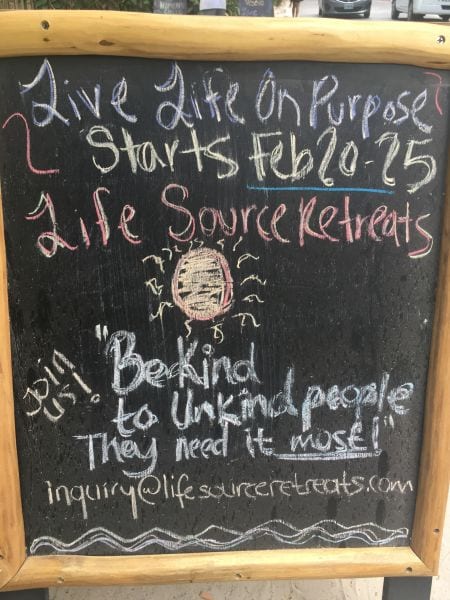 Live Life On Purpose
Starts Feb 20-25
Life Source Retreats
Join us!
"Be Kind
to Unkind people
They need it most!"
inquiry@lifesourceretreats.com